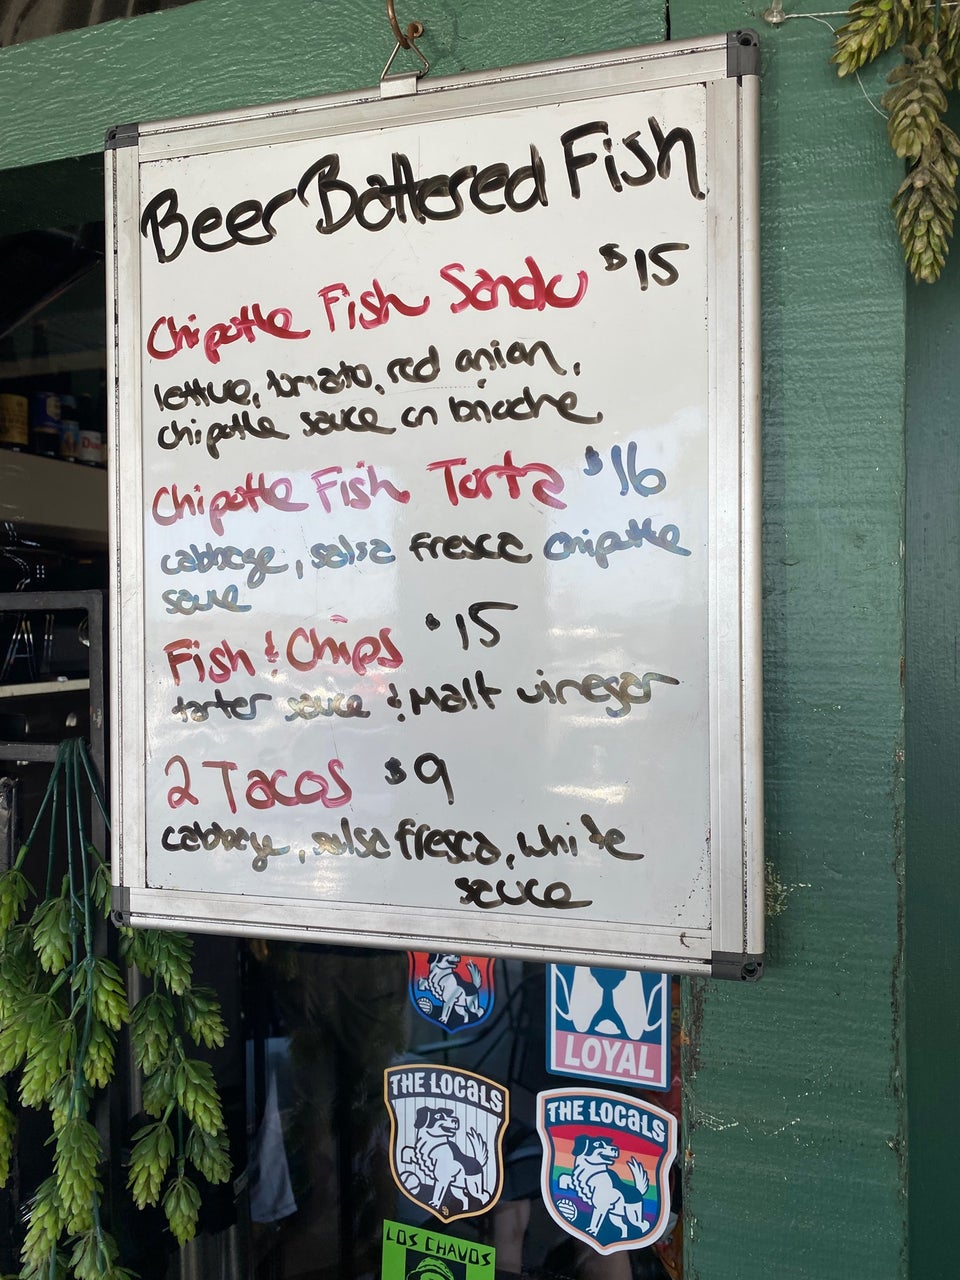 Beer Battered Fish
Chipotle Fish Sando $15
lettuce, tomato, red onion,
chipotle sauce on brioche
Chipotle Fish Torta $16
cabbage, salsa fresca chipotle
sauce
Fish & Chips $15
tarter sauce & Malt vinegar
2 Tacos $9
cabbage, salsa fresca, white
sauce
LOYAL
THE LOCALS
THE LOCALS
LOS CHAVOS